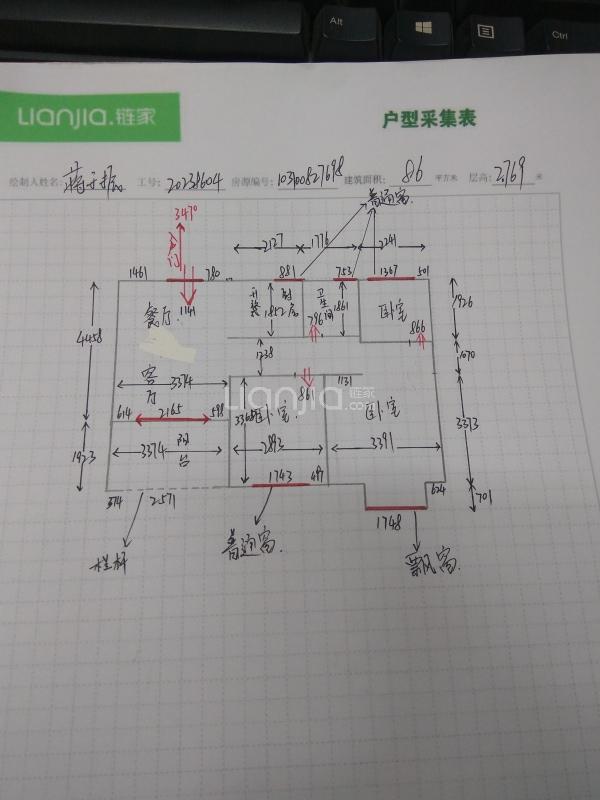 Alt
Ctrl
Lianjia.链家
户型采集表
绘制人姓名: 工号: 20238604 房源编号: 103100827698 建筑面积: 86 平方米 层高: 2.769 米
347°
普通窗
入户门
2127 1776 2241
1461 780 881 753 1367 501
1141
餐厅
开放厨房
1852
卫生间
1861
796
卧室
866
1926
4458
1238
1070
客厅
3374
861
1131
Lianjia.链家
.com
614 2165 598
3368
卧室
卧室
3313
1923
3374
阳台
2893
3391
374 2571
1743 497
624
701
1748
栏杆
普通窗
飘窗